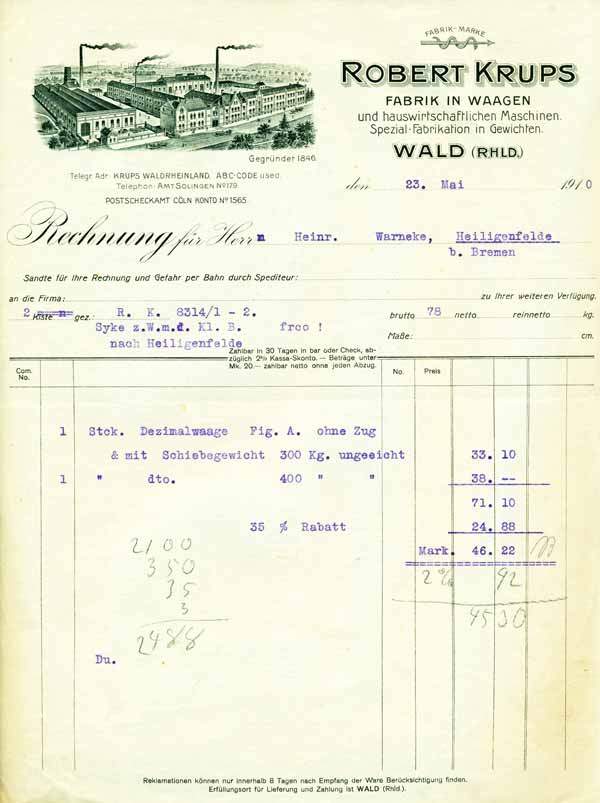 FABRIK-MARKE
ROBERT KRUPS
FABRIK IN WAAGEN
und hauswirtschaftlichen Maschinen.
Spezial-Fabrikation in Gewichten.
WALD (RHLD.)
Gegründet 1846.
Telegr. Adr.: KRUPS WALDRHEINLAND. ABC-CODE used.
Telephon: AMT SOLINGEN Nº 179.
POSTSCHECKAMT CÖLN KONTO Nº 1565.
den 23. Mai 1910
Rechnung für Herrn Heinr. Warneke, Heiligenfelde
b. Bremen
Sandte für Ihre Rechnung und Gefahr per Bahn durch Spediteur:
an die Firma: zu Ihrer weiteren Verfügung.
2 Kiste n gez.: R. K. 8314/1 - 2. brutto 78 netto reinnetto kg.
Syke z.W.m.d. Kl. B. frco ! Maße: cm.
nach Heiligenfelde
Zahlbar in 30 Tagen in bar oder Check, ab-
züglich 2% Kassa-Skonto. — Beträge unter
Mk. 20.— zahlbar netto ohne jeden Abzug.
Com. No. No. Preis
1 Stck. Dezimalwaage Fig. A. ohne Zug
& mit Schiebegewicht 300 Kg. ungeeicht 33. 10
1 " dto. 400 " " 38. --
71. 10
35 % Rabatt 24. 88
Mark. 46. 22
2% 92
4530
2100
350
35
3
2488
Du.
Reklamationen können nur innerhalb 8 Tagen nach Empfang der Ware Berücksichtigung finden.
Erfüllungsort für Lieferung und Zahlung ist WALD (Rhld.).